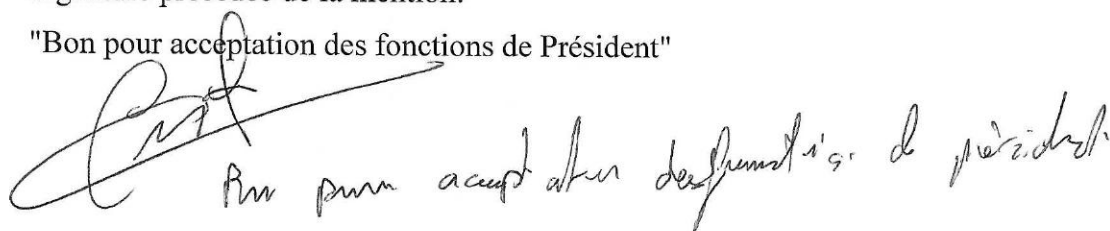 "Bon pour acceptation des fonctions de Président"
Bon pour acceptation des fonctions de président